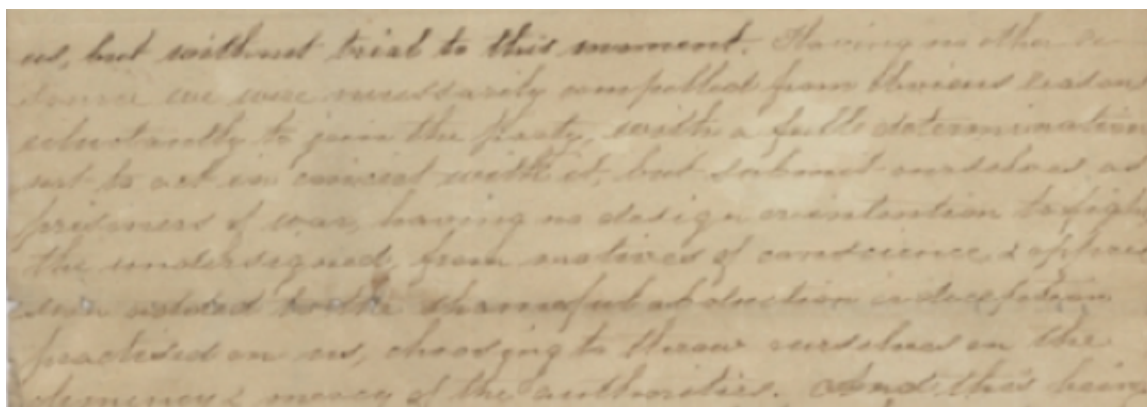 us, but without trial to this moment. Having no other
we were necessarily compelled from obvious reason
reluctantly to join the party, with a full determination
not to act in concert with it, but submit ourselves as
prisoners of war, having no design or intention to fight
the undersigned, from motives of conscience, & oppres
sion added to the shameful abduction or deception
practised on us, choosing to throw ourselves on the
clemency & mercy of the authorities. And this being